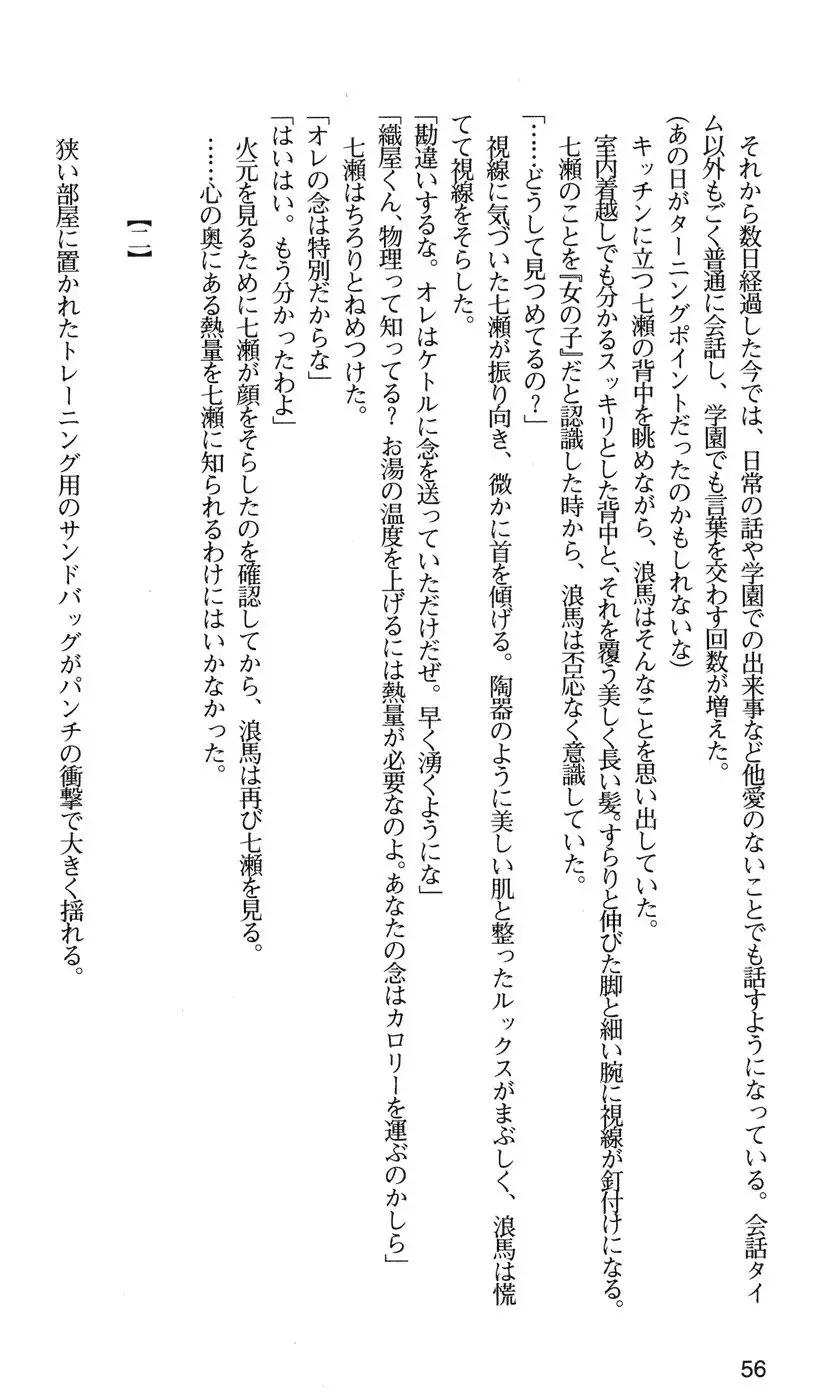 それから数日経過した今では、日常の話や学園での出来事など他愛のないことでも話すようになっている。会話タイ
ム以外もごく普通に会話し、学園でも言葉を交わす回数が増えた。
(あの日がターニングポイントだったのかもしれないな)
キッチンに立つ七瀬の背中を眺めながら、浪馬はそんなことを思い出していた。
室内着越しでも分かるスッキリとした背中と、それを覆う美しく長い髪。すらりと伸びた脚と細い腕に視線が釘付けになる。
七瀬のことを『女の子』だと認識した時から、浪馬は否応なく意識していた。
「……どうして見つめてるの？」
視線に気づいた七瀬が振り向き、微かに首を傾げる。陶器のように美しい肌と整ったルックスがまぶしく、浪馬は慌
てて視線をそらした。
「勘違いするな。オレはケトルに念を送っていただけだぜ。早く湧くようにな」
「織屋くん、物理って知ってる？お湯の温度を上げるには熱量が必要なのよ。あなたの念はカロリーを運ぶのかしら」
七瀬はちろりとねめつけた。
「オレの念は特別だからな」
「はいはい。もう分かったわよ」
火元を見るために七瀬が顔をそらしたのを確認してから、浪馬は再び七瀬を見る。
……心の奥にある熱量を七瀬に知られるわけにはいかなかった。
【二】
狭い部屋に置かれたトレーニング用のサンドバッグがパンチの衝撃で大きく揺れる。
56